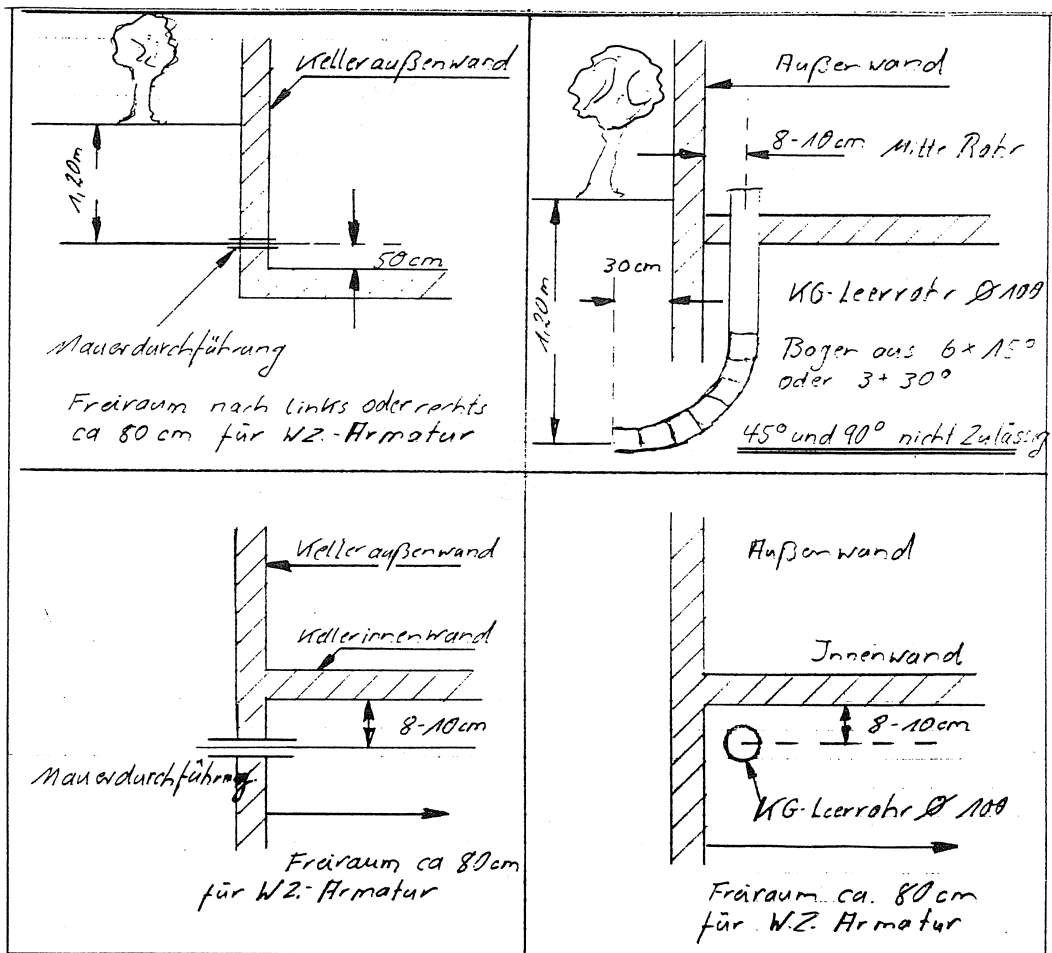 Kelleraußenwand
1,20m
50cm
Mauerdurchführung
Freiraum nach links oder rechts
ca 80 cm für WZ.-Armatur
Außenwand
8-10cm Mitte Rohr
30cm
1,20m
KG-Leerrohr Ø 100
Bogen aus 6 x 15°
oder 3 + 30°
45° und 90° nicht Zulässig
Kelleraußenwand
Kellerinnenwand
8-10cm
Mauerdurchführung
Freiraum ca 80cm
für WZ.-Armatur
Außenwand
Innenwand
8-10cm
KG-Leerrohr Ø 100
Freiraum ca. 80cm
für W.Z. Armatur